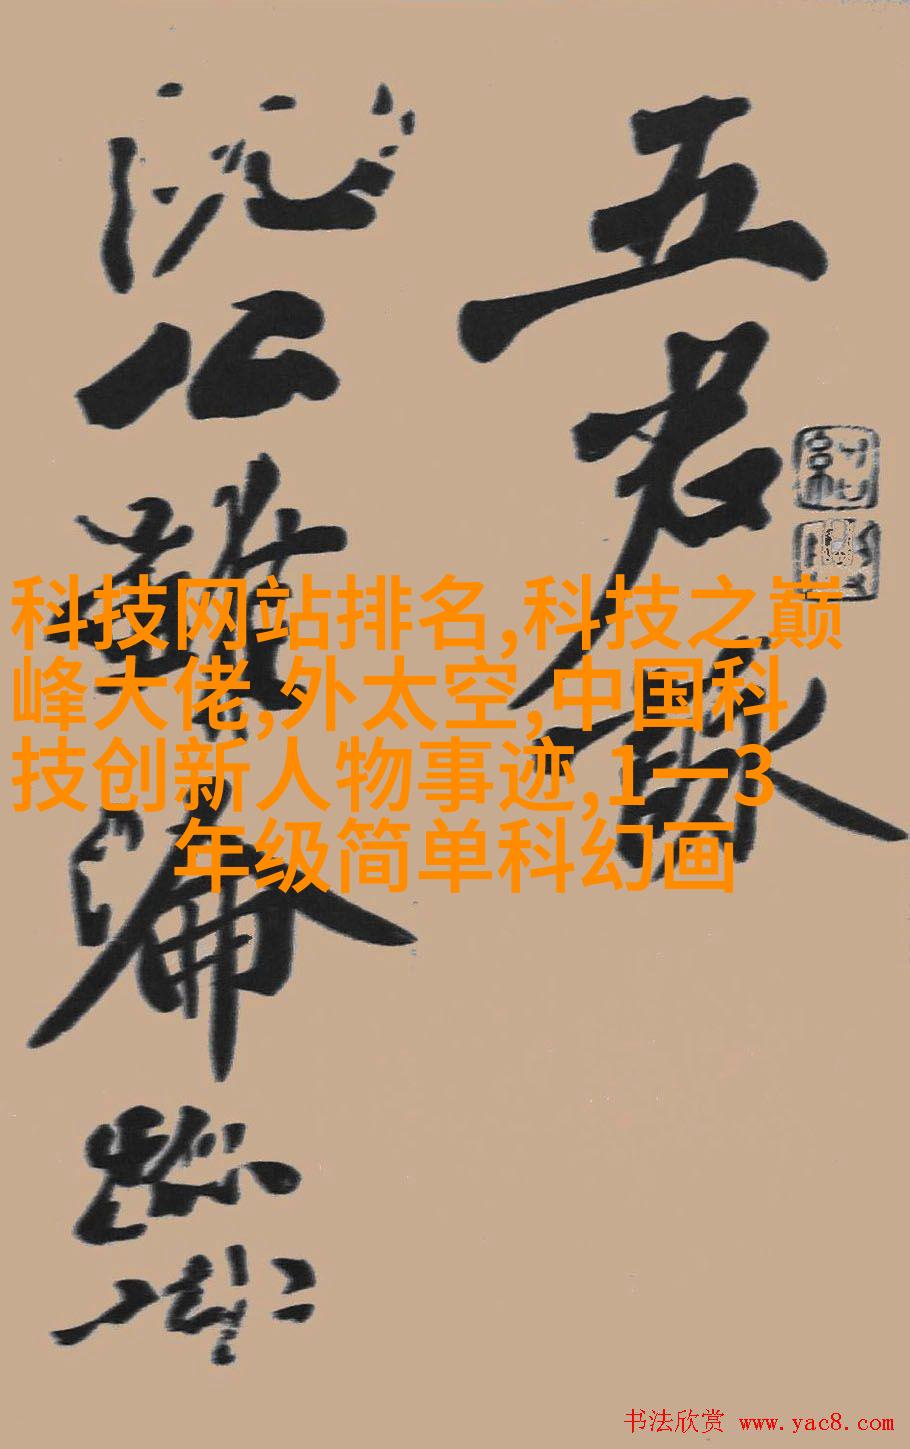 五君詠
阮公雖淪跡
科技网站排名,科技之巅
峰大佬,外太空,中国科
技创新人物事迹,1—3
年级简单科幻画
书法欣赏 www.yac8.com